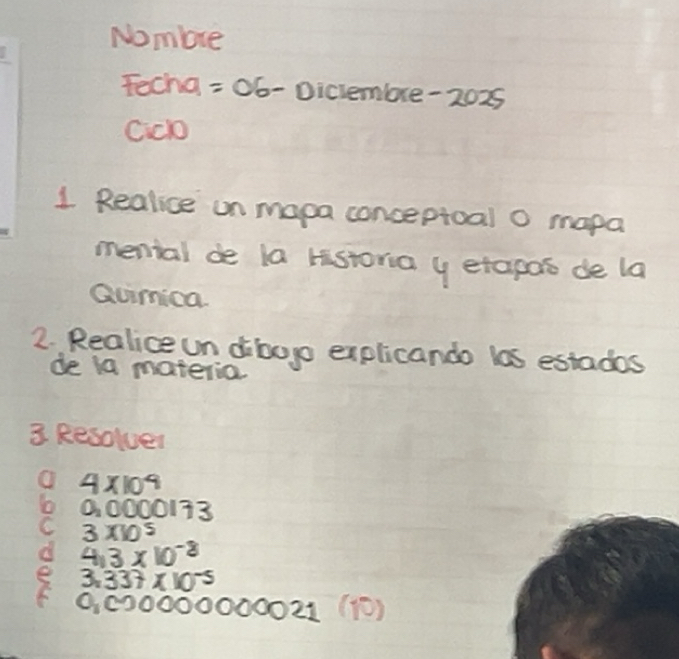 Nombre
Fecha = 06- Diciembre - 2025
Ciclo
1 Realice un mapa conceptual o mapa
mental de la Historia y etapas de la
Quimica.
2. Realice un dibujo explicando los estados
de la materia.
3. Resolver
a 4x10⁹
b 0,0000173
c 3x10⁵
d 4,3 x 10⁻⁸
e 3,337 x 10⁻⁵
f 0,000000000021 (10)